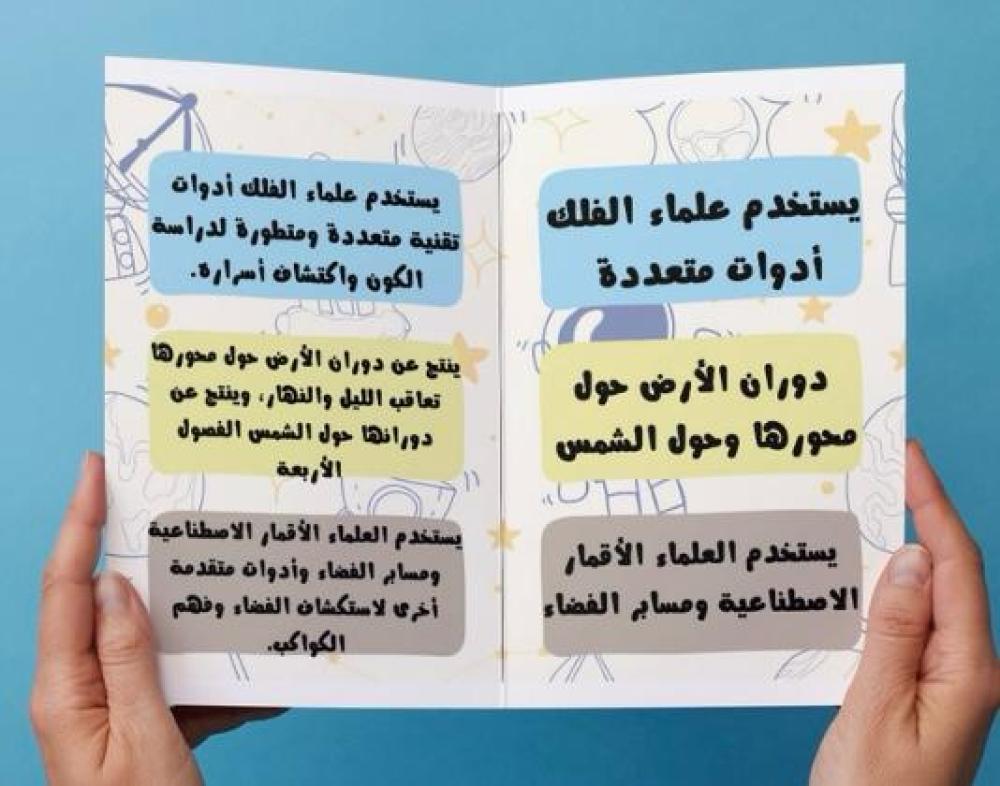 يستخدم علماء الفلك
أدوات متعددة
دوران الأرض حول
محورها وحول الشمس
يستخدم العلماء الأقمار
الاصطناعية ومسابر الفضاء
يستخدم علماء الفلك أدوات
تقنية متعددة ومتطورة لدراسة
الكون واكتشاف أسراره.
ينتج عن دوران الأرض حول محورها
تعاقب الليل والنهار، وينتج عن
دورانها حول الشمس الفصول
الأربعة
يستخدم العلماء الأقمار الاصطناعية
ومسابر الفضاء وأدوات متقدمة
أخرى لاستكشاف الفضاء وفهم
الكواكب.